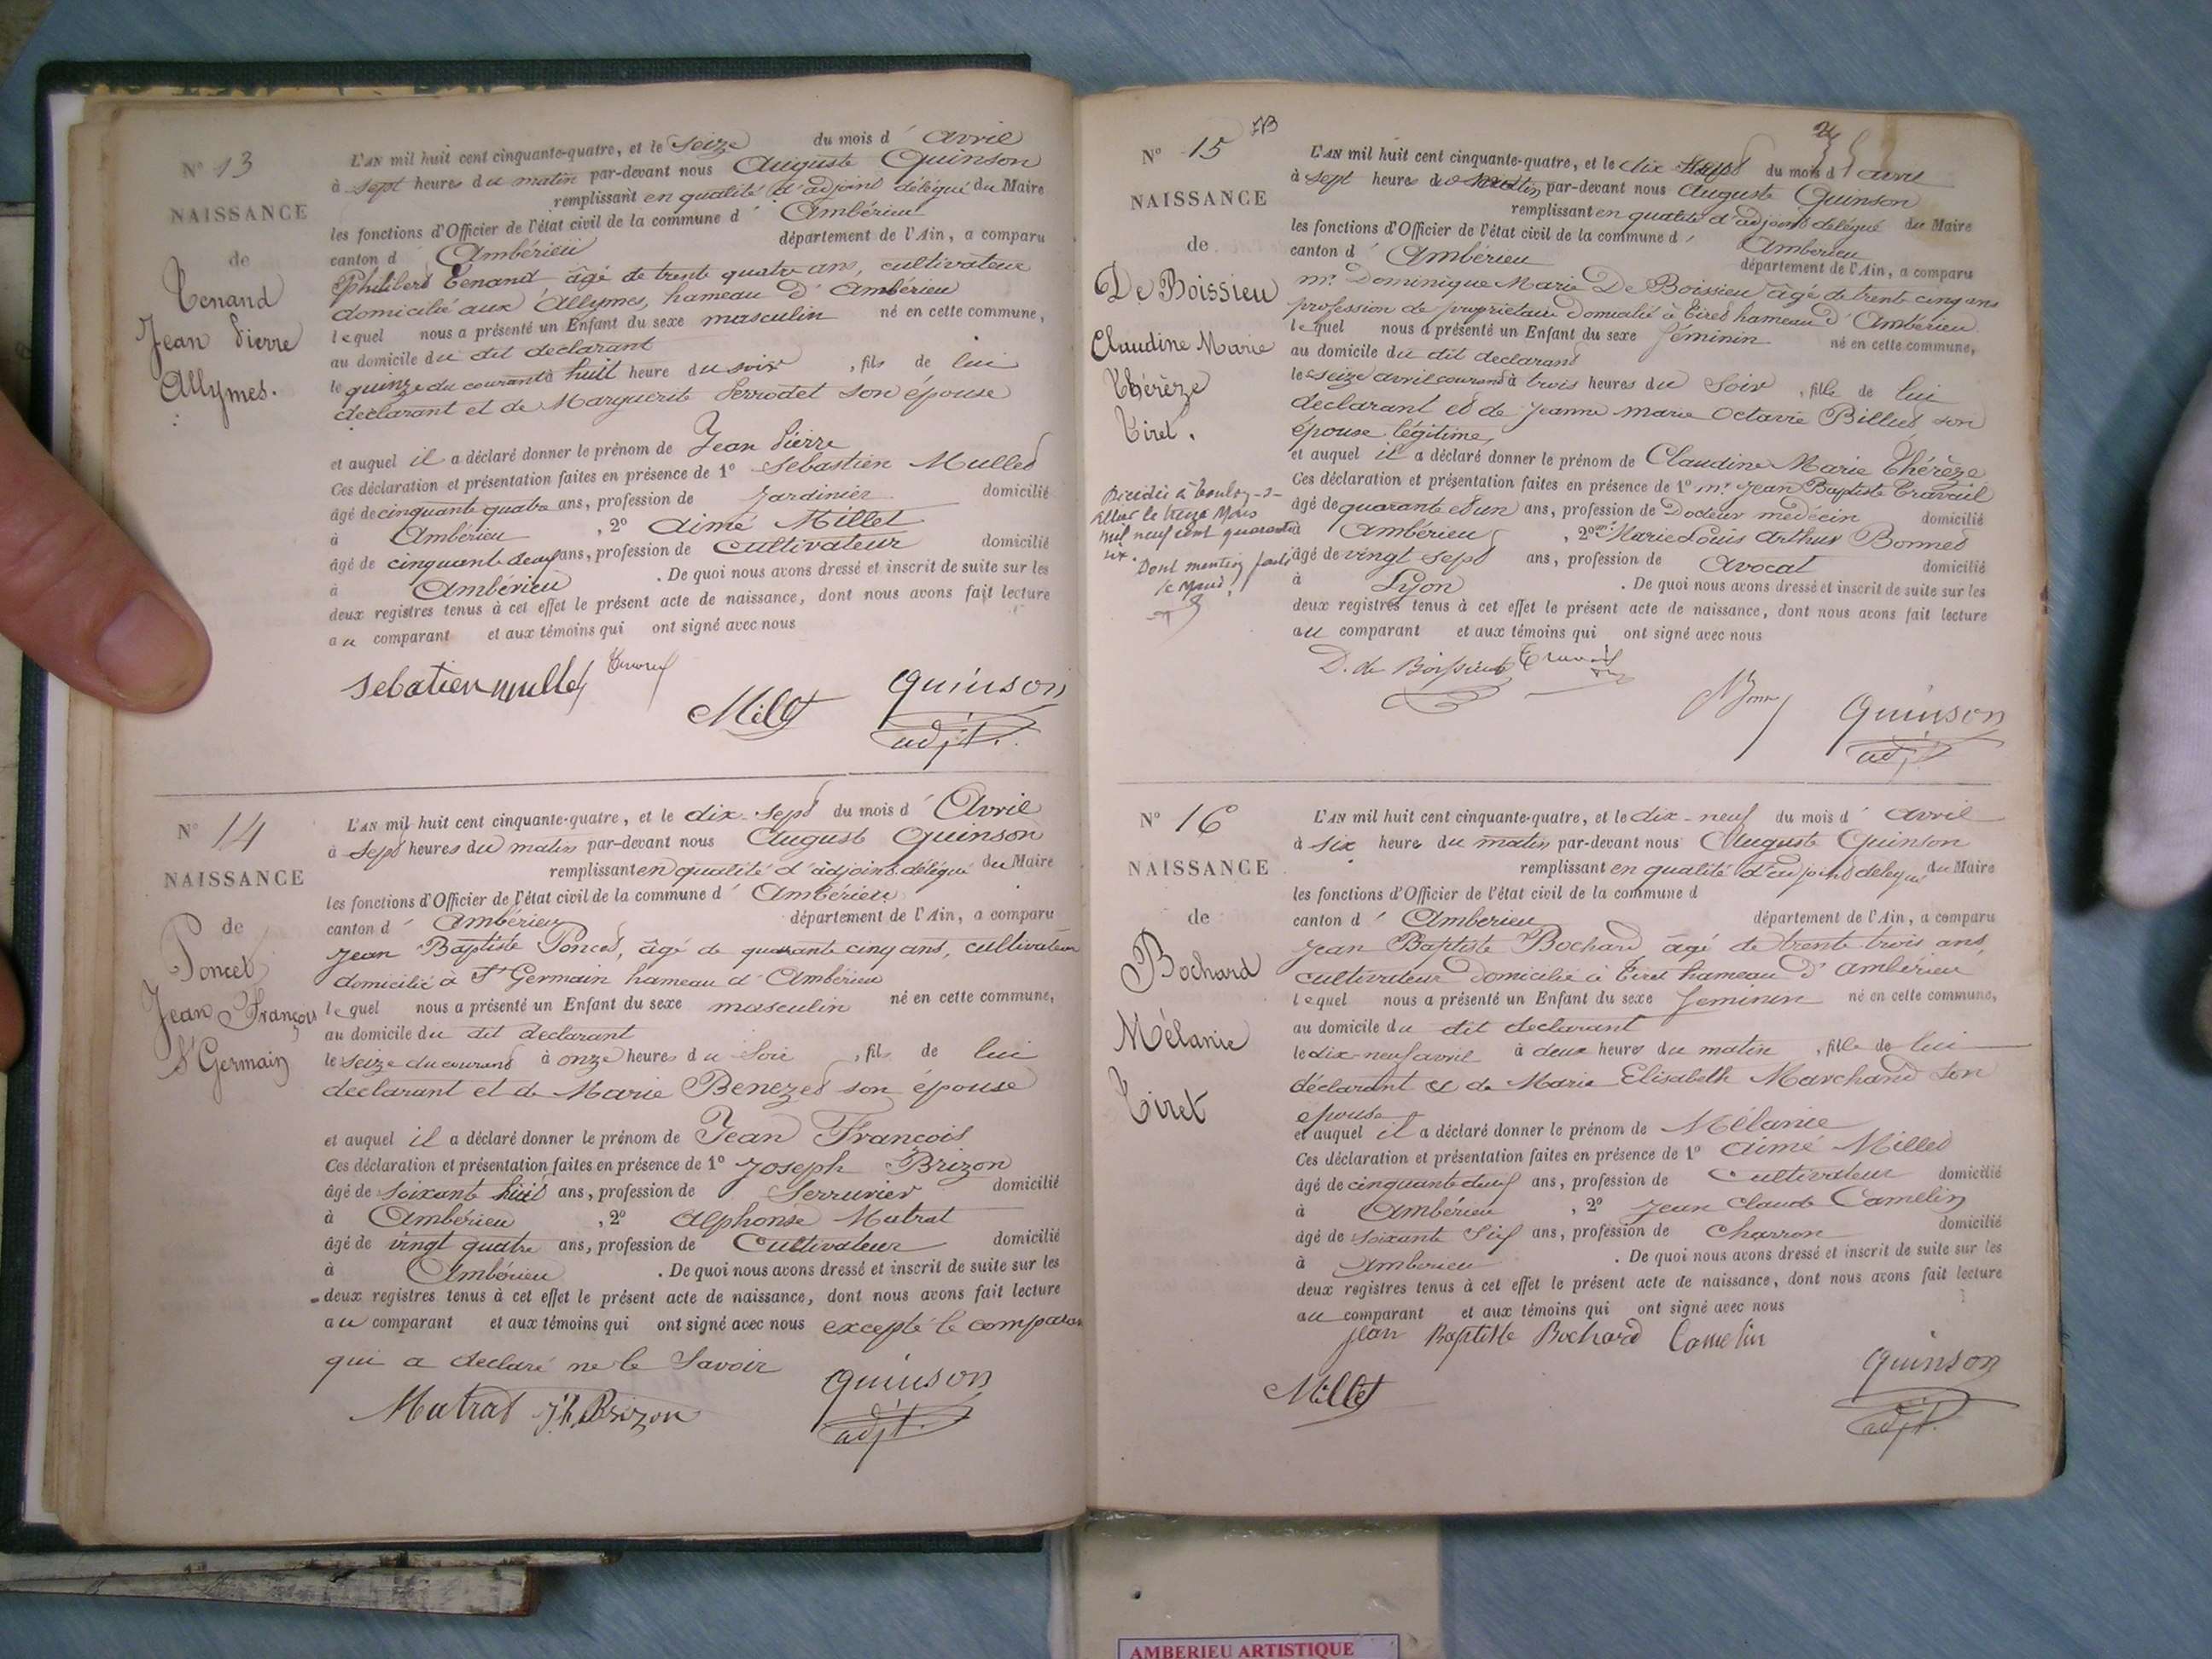 N° 13
NAISSANCE
de
Tenand
Jean Pierre
Allymes.
L'AN mil huit cent cinquante-quatre, et le Seize du mois d' avril
à sept heures du matin par-devant nous Auguste Quinson
remplissant en qualité d'adjoint délégué du Maire
les fonctions d'Officier de l'état civil de la commune d' Ambérieu
canton d' Ambérieu département de l'Ain, a comparu
Philibert Tenand âgé de trente quatre ans, cultivateur
domicilié aux Allymes, hameau d' Ambérieu
lequel nous a présenté un Enfant du sexe masculin né en cette commune,
au domicile du dit declarant
le quinze du courant à huit heure du soir, fils de lui
declarant et de Marguerite Perrodet son épouse
et auquel il a déclaré donner le prénom de Jean Pierre
Ces déclaration et présentation faites en présence de 1° Sebastien Mullet
âgé de cinquante quatre ans, profession de Jardinier domicilié
à Ambérieu, 2° Aimé Millet
âgé de cinquante deux ans, profession de Cultivateur domicilié
à Ambérieu. De quoi nous avons dressé et inscrit de suite sur les
deux registres tenus à cet effet le présent acte de naissance, dont nous avons fait lecture
au comparant et aux témoins qui ont signé avec nous
Sebatien mullet
Milet
quinson
adjt.
N° 14
NAISSANCE
de
Poncet
Jean François
St Germain
L'AN mil huit cent cinquante-quatre, et le dix-sept du mois d' Avril
à Sept heures du matin par-devant nous Auguste Quinson
remplissant en qualité d'adjoint délégué du Maire
les fonctions d'Officier de l'état civil de la commune d' Ambérieu
canton d' Ambérieu département de l'Ain, a comparu
Jean Baptiste Poncet, âgé de quarante cinq ans, cultivateur
domicilié à St Germain hameau d' Ambérieu
lequel nous a présenté un Enfant du sexe masculin né en cette commune,
au domicile du dit declarant
le seize du courant à onze heures du Soir, fils de lui
declarant et de Marie Benezet son épouse
et auquel il a déclaré donner le prénom de Jean François
Ces déclaration et présentation faites en présence de 1° Joseph Brizon
âgé de soixante huit ans, profession de Serrurier domicilié
à Ambérieu, 2° Alphonse Mutrat
âgé de vingt quatre ans, profession de Cultivateur domicilié
à Ambérieu. De quoi nous avons dressé et inscrit de suite sur les
deux registres tenus à cet effet le présent acte de naissance, dont nous avons fait lecture
au comparant et aux témoins qui ont signé avec nous excepté le comparant
qui a declaré ne le Savoir
Mutrat Jh Brizon
quinson
adjt.
N° 15
NAISSANCE
de
De Boissieu
Claudine Marie
Thérèze
Tiret.
Décédée à
le treize Mars
mil neuf cent quarante
six.
Dont mention faite
L'AN mil huit cent cinquante-quatre, et le dix Sept du mois d' avril
à sept heures du matin par-devant nous Auguste Quinson
remplissant en qualité d'adjoint délégué du Maire
les fonctions d'Officier de l'état civil de la commune d' Ambérieu
canton d' Ambérieu département de l'Ain, a comparu
mr. Dominique Marie De Boissieu âgé de trente cinq ans
profession de propriétaire domicilié à Tiret hameau d' Ambérieu
lequel nous a présenté un Enfant du sexe féminin né en cette commune,
au domicile du dit declarant
le seize avril courant à trois heures du Soir, fille de lui
declarant et de Jeanne marie Octavie Billiet son
épouse légitime
et auquel il a déclaré donner le prénom de Claudine Marie Thérèze
Ces déclaration et présentation faites en présence de 1° mr. Jean Baptiste Travail
âgé de quarante et un ans, profession de Docteur médecin domicilié
à Ambérieu, 2° mr. Marie Louis Arthur Bonnet
âgé de vingt sept ans, profession de Avocat domicilié
à Lyon. De quoi nous avons dressé et inscrit de suite sur les
deux registres tenus à cet effet le présent acte de naissance, dont nous avons fait lecture
au comparant et aux témoins qui ont signé avec nous
D. de Boissieu Travail
quinson
adjt
N° 16
NAISSANCE
de
Bochard
Mélanie
Tiret
L'AN mil huit cent cinquante-quatre, et le dix-neuf du mois d' avril
à six heure du matin par-devant nous Auguste Quinson
remplissant en qualité d'adjoint délégué du Maire
les fonctions d'Officier de l'état civil de la commune d
canton d' Ambérieu département de l'Ain, a comparu
Jean Baptiste Bochard âgé de trente trois ans,
cultivateur domicilié à Tiret hameau d' ambérieu
lequel nous a présenté un Enfant du sexe feminin né en cette commune,
au domicile du dit declarant
le dix-neuf avril à deux heures du matin, fille de lui
déclarant et de Marie Elisabeth Marchand son
epouse
et auquel il a déclaré donner le prénom de Mélanie
Ces déclaration et présentation faites en présence de 1° Aimé Millet
âgé de cinquante deux ans, profession de Cultivateur domicilié
à Ambérieu, 2° Jean Claude Camelin
âgé de soixante Six ans, profession de Charron domicilié
à Amberieu. De quoi nous avons dressé et inscrit de suite sur les
deux registres tenus à cet effet le présent acte de naissance, dont nous avons fait lecture
au comparant et aux témoins qui ont signé avec nous
Jean Baptiste Bochard Camelin
Millet
quinson
adjt.
AMBERIEU ARTISTIQUE